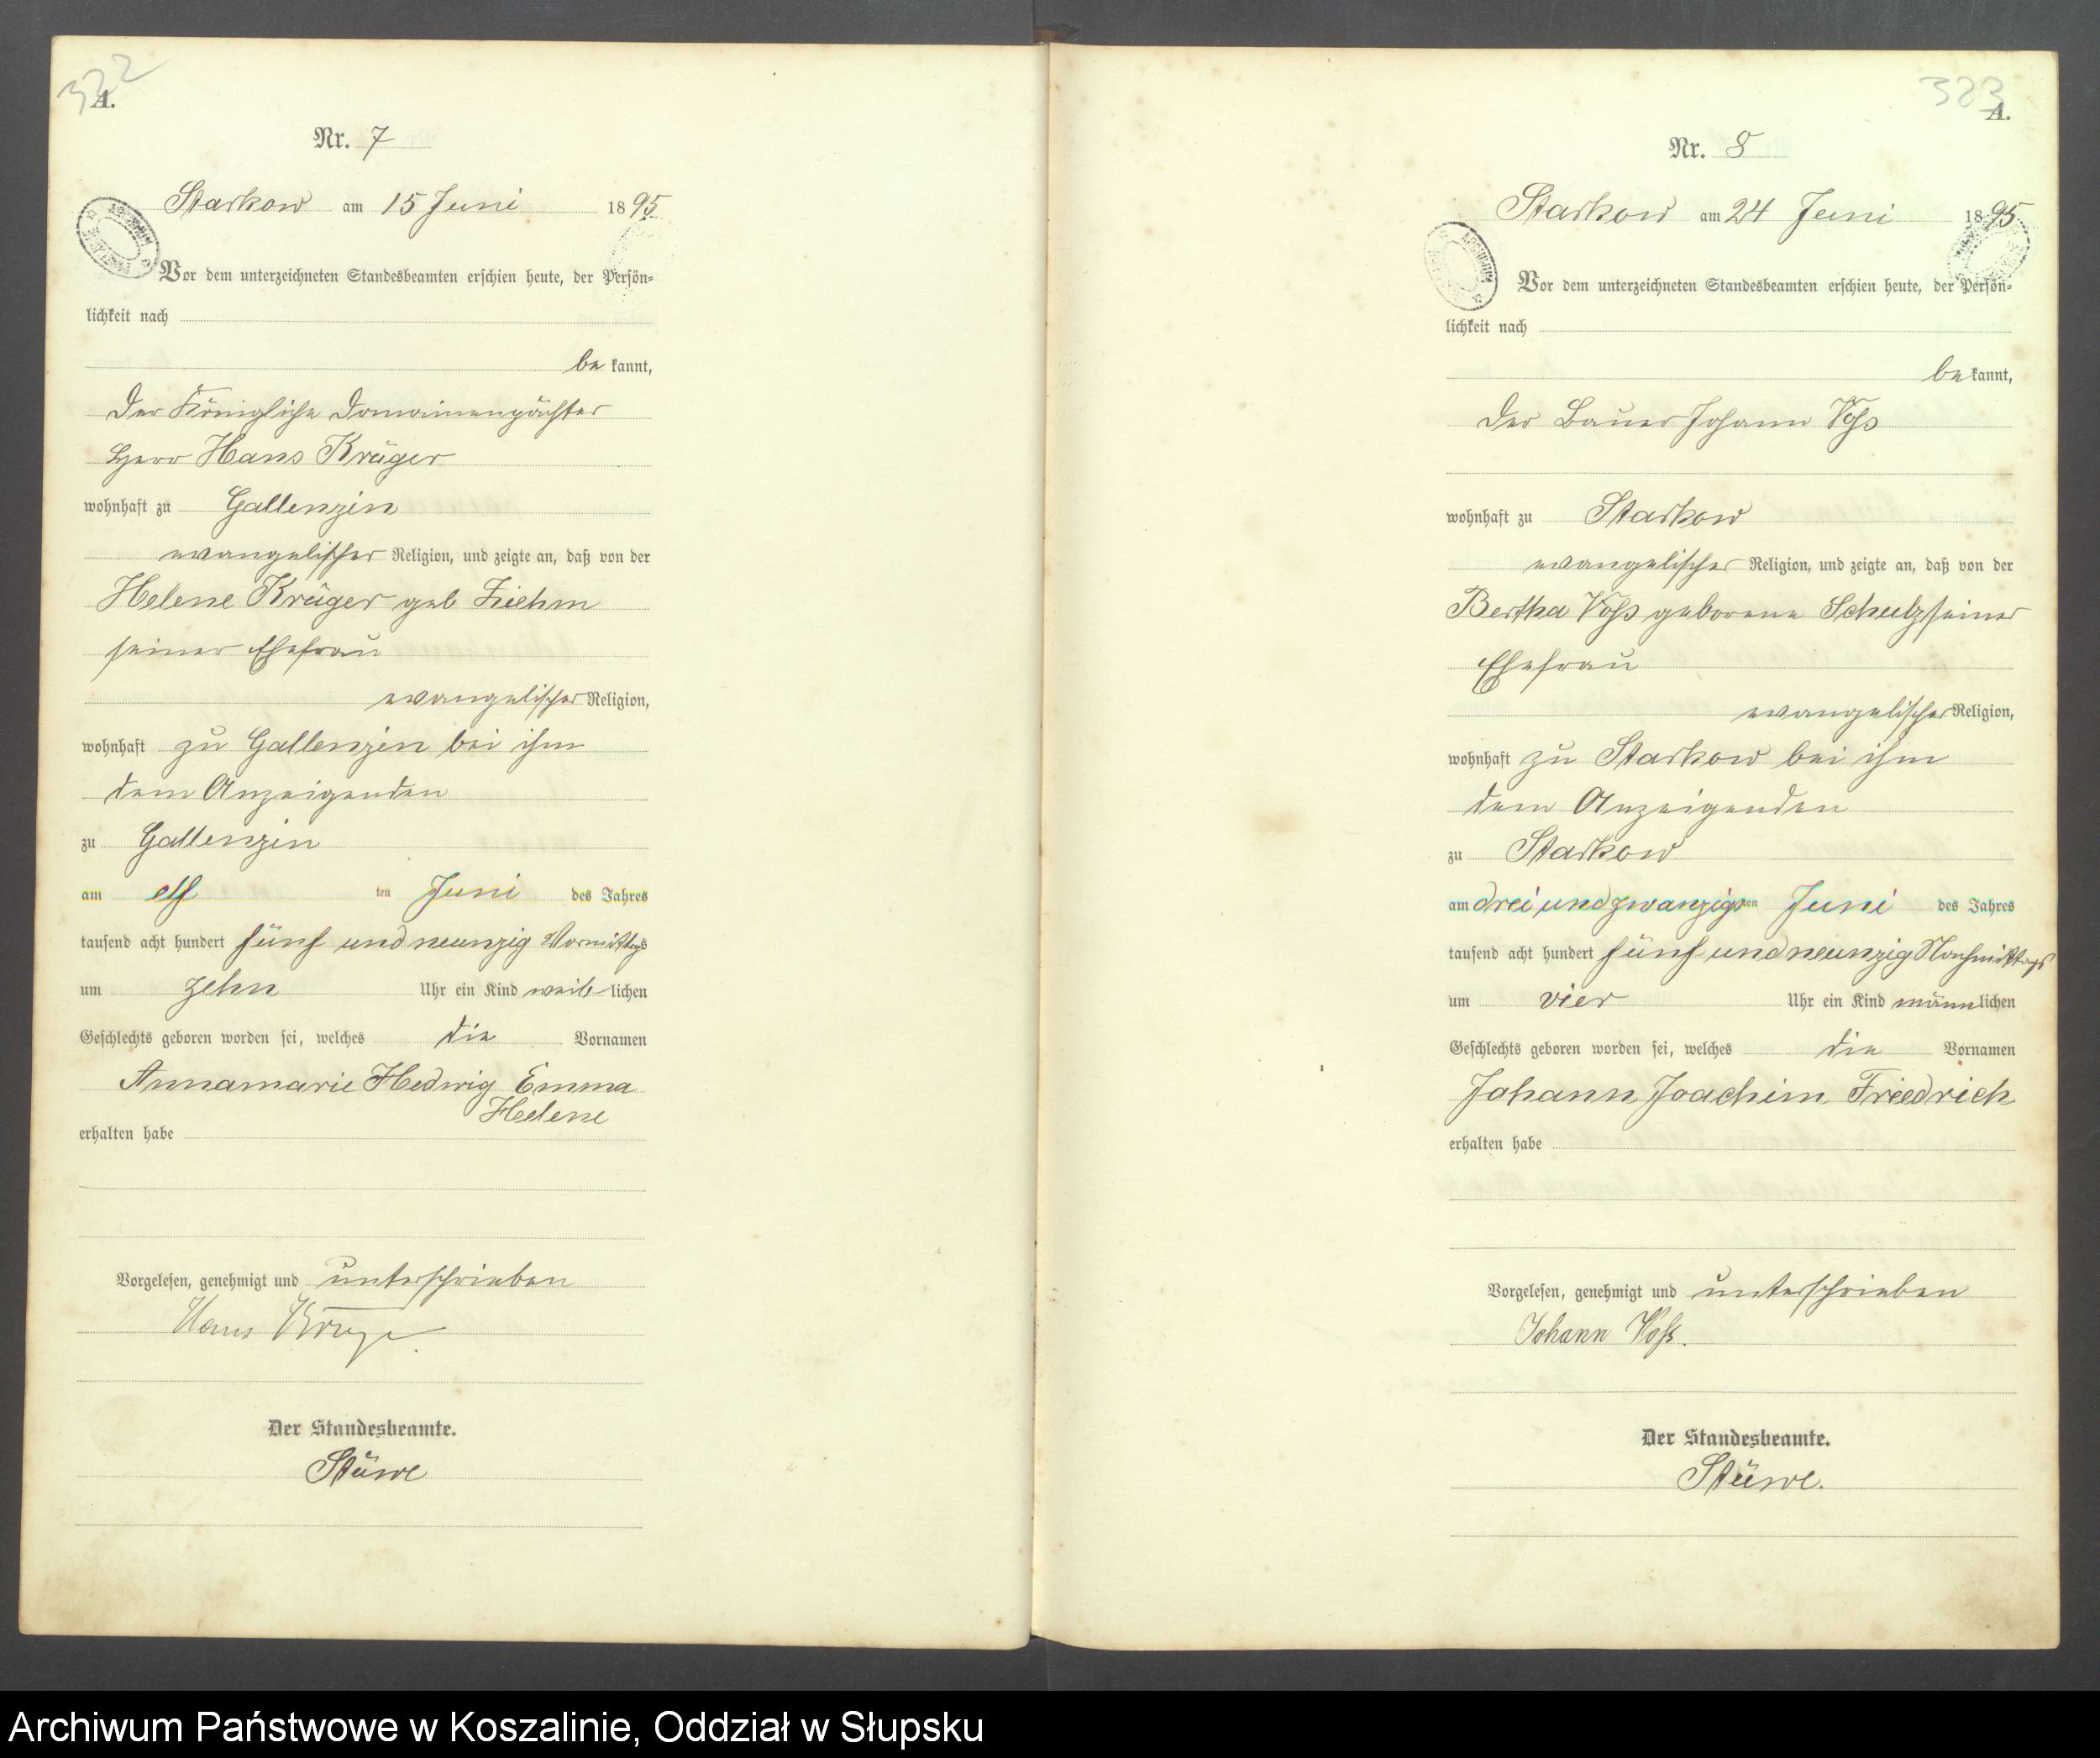 322
A.
Nr. 7
Starkow am 15 Juni 1895
Vor dem unterzeichneten Standesbeamten erschien heute, der Persön-
lichkeit nach
be kannt,
der Königliche Domainenpächter
Herr Hans Krüger
wohnhaft zu Gallenzin
evangelischer Religion, und zeigte an, daß von der
Helene Krüger geb Ziehm
seiner Ehefrau
evangelischer Religion,
wohnhaft zu Gallenzin bei ihm
dem Anzeigenden
zu Gallenzin
am elf ten Juni des Jahres
tausend acht hundert fünf und neunzig Vormittags
um zehn Uhr ein Kind weib lichen
Geschlechts geboren worden sei, welches die Vornamen
Annamarie Hedwig Emma
Helene
erhalten habe
Vorgelesen, genehmigt und unterschrieben
Hans Krüger
Der Standesbeamte.
Stüwe
323
A.
Nr. 8
Starkow am 24 Juni 1895
Vor dem unterzeichneten Standesbeamten erschien heute, der Persön-
lichkeit nach
be kannt,
der Bauer Johann Voß
wohnhaft zu Starkow
evangelischer Religion, und zeigte an, daß von der
Bertha Voß geborene Schulz seiner
Ehefrau
evangelischer Religion,
wohnhaft zu Starkow bei ihm
dem Anzeigenden
zu Starkow
am drei und zwanzigsten Juni des Jahres
tausend acht hundert fünf und neunzig Nachmittags
um vier Uhr ein Kind männlichen
Geschlechts geboren worden sei, welches die Vornamen
Johann Joachim Friedrich
erhalten habe
Vorgelesen, genehmigt und unterschrieben
Johann Voß.
Der Standesbeamte.
Stüwe.
Archiwum Państwowe w Koszalinie, Oddział w Słupsku